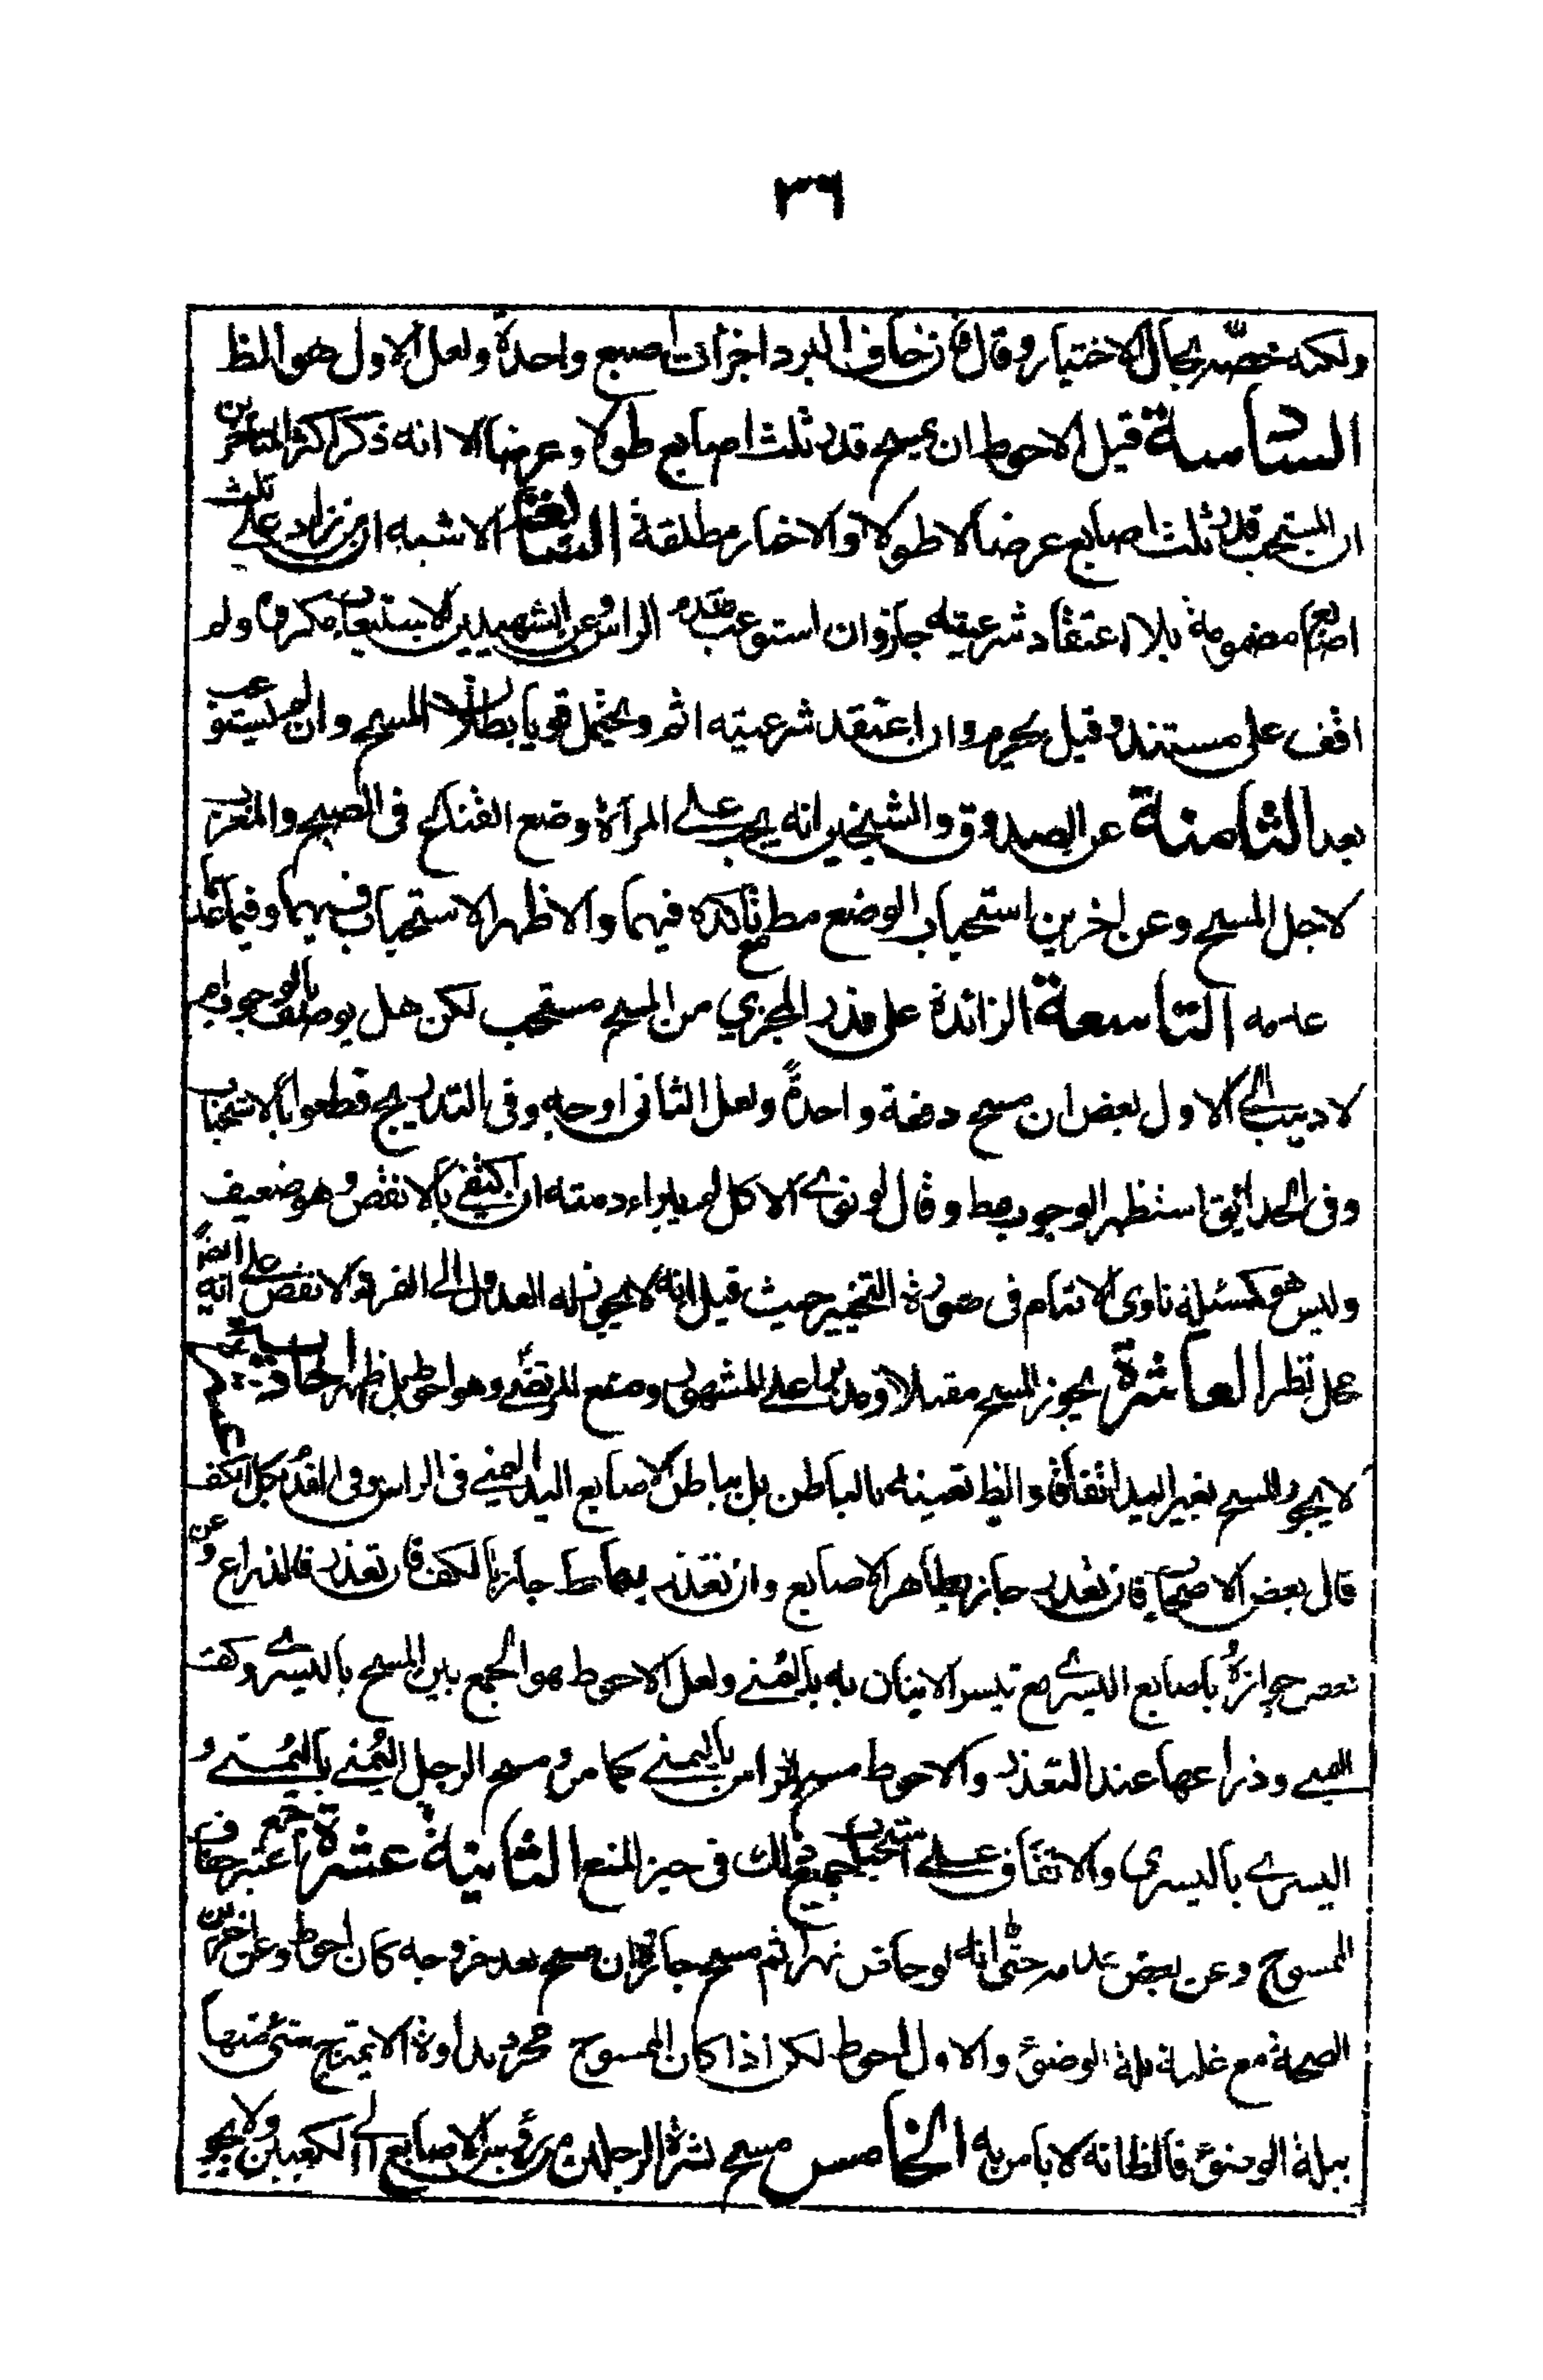 ٣٦
ولكنه خصّه بحال الاختيار وقال فان خاف البرد اجزأت اصبع واحدة ولعل الاول هو الظ
السادسة قيل الاحوط ان يمسح قدر ثلث اصابع طولا وعرضا الا انه ذكر اكثر المتأخرين
ان المستحب قدر ثلث اصابع عرضا لا طولا والاخبار مطلقة السابعة الاشبه ان من زاد على ثلث
اصابع مضمومة بلا اعتقاد شرعيته جاز وان استوعب مقدم الراس وعن الشهيدين الاستيعاب مكروه ولم
اقف على مستنده وقيل يحرم وان اعتقد شرعيته اثم ويحتمل قويا بطلان المسح وان لم يستوعب
بعد الثامنة عن الصدوق والشيخين انه يجب على المرأة وضع القناع في الصبح والمغرب
لاجل المسح وعن اخرين استحباب الوضع مط وتأكده فيهما والاظهر الاستحباب فيهما وفيما عدا
التاسعة الزائدة على قدر المجزي من المسح مستحب لكن هل يوصف بالوجوب ام
لا ذهب الى الاول بعض ان مسح دفعة واحدة ولعل الثاني اوجه وفي التدريج قطعوا بالاستحباب
وفي الحدائق استظهر الوجوب مط وقال لو نوى الاكل لم يبراء ذمته ان اكتفى بالانقص وهو ضعيف
وليس هو كمسئلة ناوى الاتمام في صورة التخيير حيث قيل انه لا يجوز له العدول الى الفرد الانقص على انه ايضا
محل نظر العاشرة يجوز المسح مقبلا ومدبرا على المشهور ومنع المرتضى وهو احوط بل اظهر الحادية عشر
لا يجوز المسح بغير اليد اتفاقا والظ تعينه بالباطن بل بباطن الاصابع اليد اليمنى في الراس وفي القدم بكل الكف
قال بعض الاصحاب فان تعذر جاز بظاهر الاصابع وان تعذر بهما ط جاز بالكف فان تعذر فالذراع وعن
بعض جوازه باصابع اليسرى مع تيسر الاتيان به باليمنى ولعل الاحوط هو الجمع بين المسح باليسرى وكف
اليمنى وذراعها عند التعذر والاحوط مسح الراس باليمنى كما مر ومسح الرجل اليمنى باليمنى و
اليسرى باليسرى والاتفاق على استحباب جميع ذلك في حيز المنع الثانية عشرة اعتبر جمع جفاف
الممسوح وعن بعض عدمه حتى انه لو خاض نهرا ثم مسح جاز وان مسح بعد خروجه كان احوط وعن اخرين
الصحة مع غلبة بلة الوضوء والاول احوط لكن اذا كان الممسوح مجرد نداوة لا يمتزج شئ منها
ببلة الوضوء فالظ انه لا باس به الخامس مسح بشرة الرجلين من رؤس الاصابع الى الكعبين ولا يجوز